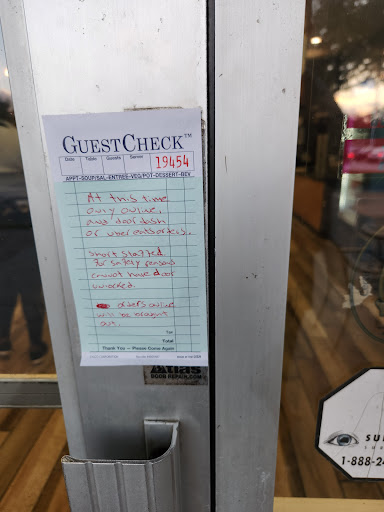 GUESTCHECK™
Date Table Guests Server 19454
APPT-SOUP/SAL-ENTREE-VEG/POT-DESSERT-BEV
At this time
only online,
and door dash
or uber eats orders.
Short staffed
for safety reasons
cannot have door
unlocked.
orders online
will be brought
out.
Tax
Total
Thank You — Please Come Again
Atlas
DOOR REPAIR.COM
SU
1-888-2